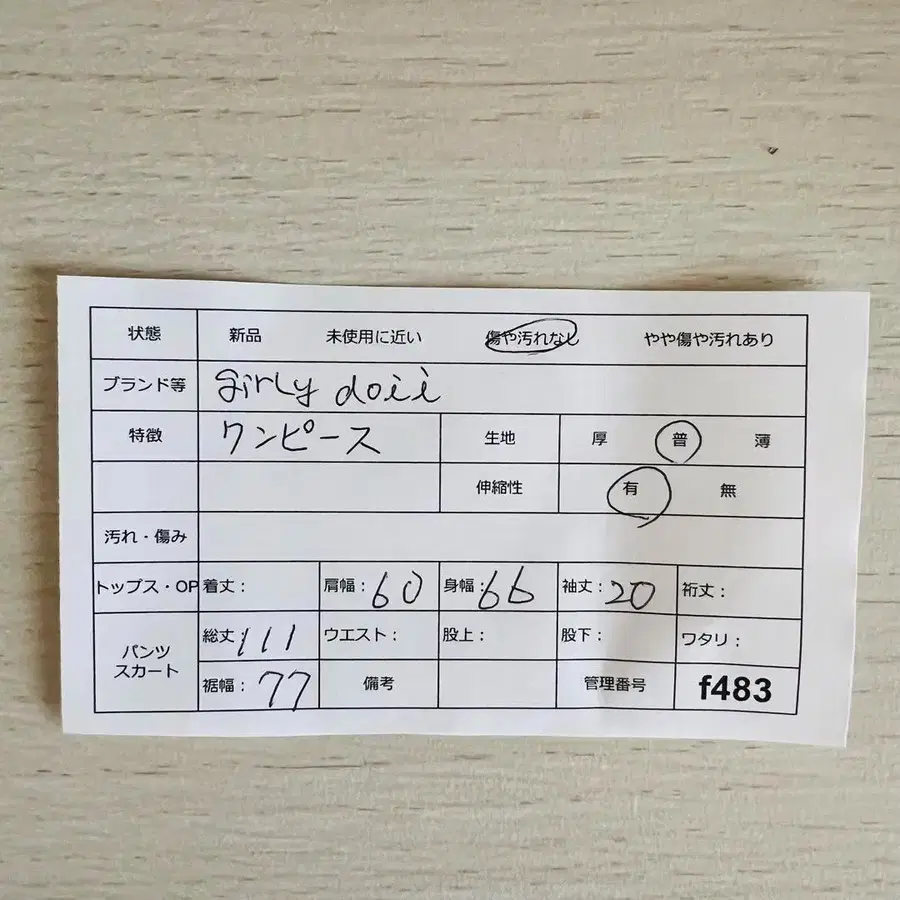 状態 新品 未使用に近い 傷や汚れなし やや傷や汚れあり
ブランド等 girly doii
特徴 ワンピース 生地 厚 普 薄
伸縮性 有 無
汚れ・傷み
トップス・OP 着丈: 肩幅:60 身幅:66 袖丈:20 裄丈:
パンツ スカート 総丈111 ウエスト: 股上: 股下: ワタリ:
裾幅:77 備考 管理番号 f483